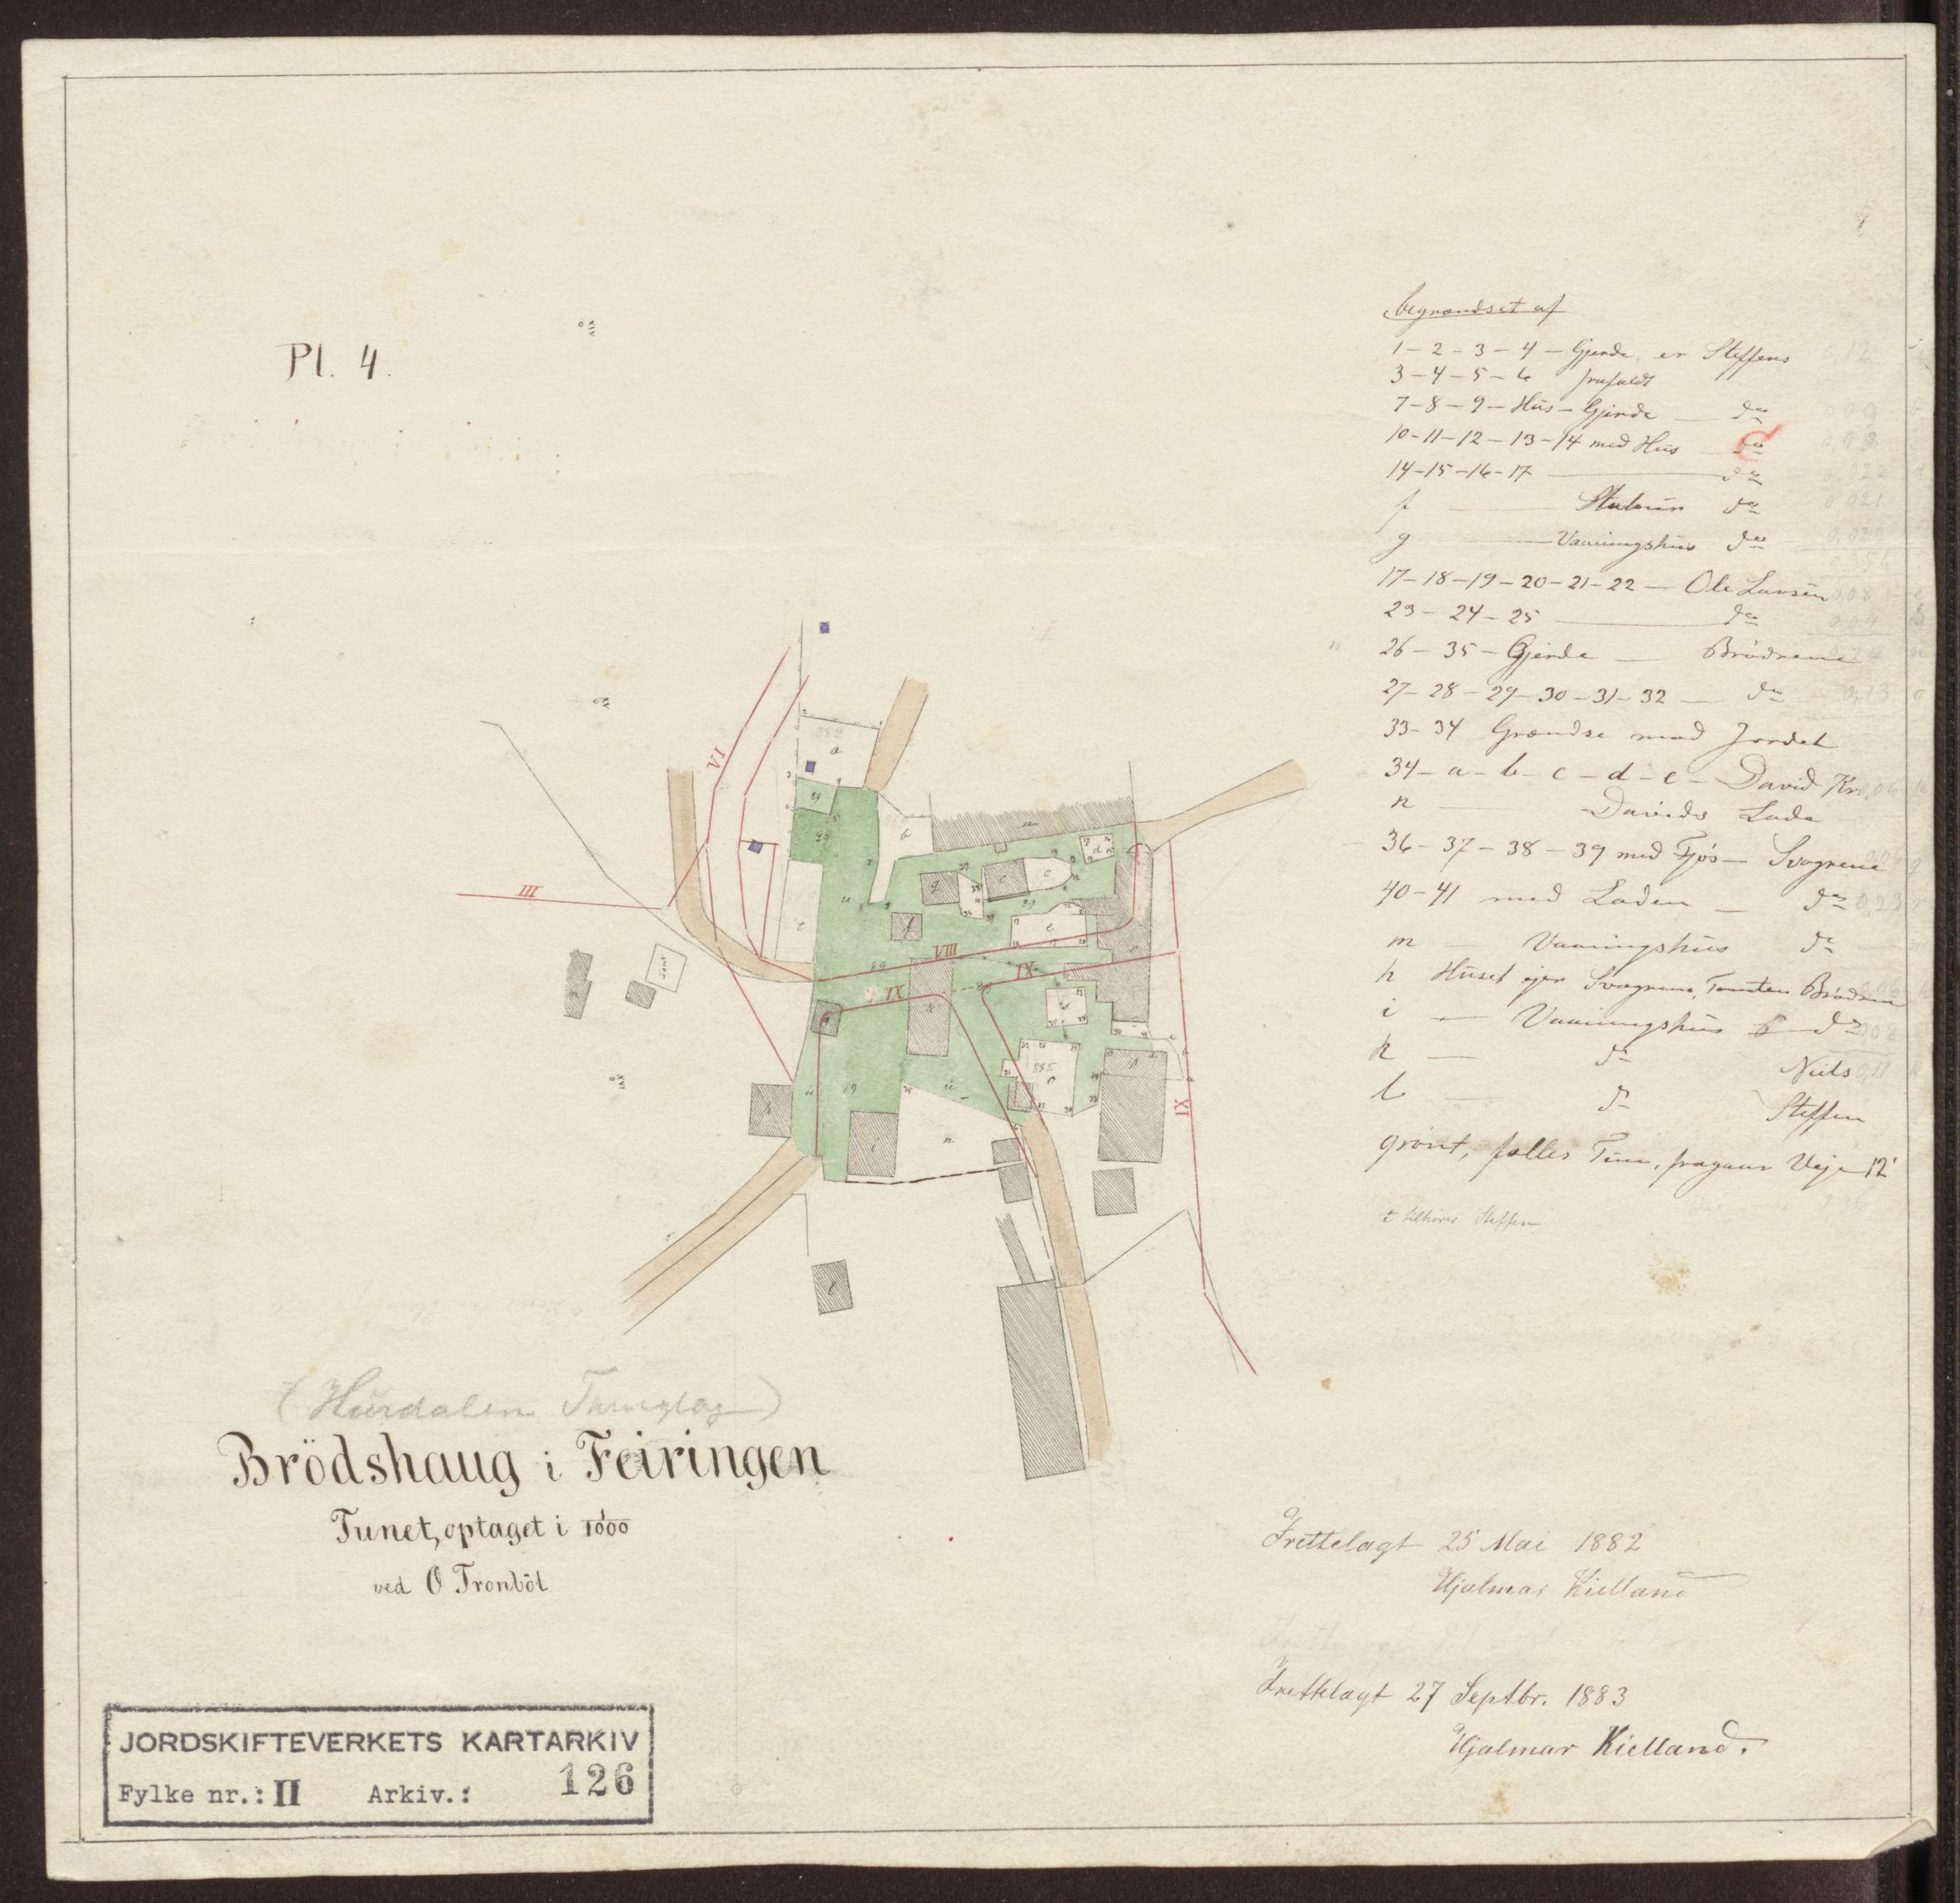 Pl. 4.
begrændset af
1 – 2 – 3 – 4 – Gjerde, er Steffens
3 – 4 – 5 – 6 frafaldt
7 – 8 – 9 – Hüs – Gjerde — do
10 – 11 – 12 – 13 – 14 med Hüs do
14 – 15 – 16 – 17 — do
f — Stabür do
g — Vaaningshüs do
17 – 18 – 19 – 20 – 21 – 22 — Ole Larsen
23 – 24 – 25 — do
26 – 35 – Gjerde — Brödrene
27 – 28 – 29 – 30 – 31 – 32 — do
33 – 34 Grændse med Jordet
34 – a – b – c – d – e – David Kr
n — Davids Lade
36 – 37 – 38 – 39 med Fjös — Svogrene
40 – 41 med Laden — do
m — Vaaningshüs do
h Hüset ejer Svogrene, Tomten Brödrene
i — Vaaningshüs do
k — do Niels
l — do Steffen
grönt, fælles Tün, fragaar Veje 12'
t tilhörer Steffen
VI
III
VIII
IX
IX
XI
(Hurdalen Thinglag)
Brödshaug i Feiringen
Tunet, optaget i 1/1000
ved O Tronböl
Frettelagt 25 Mai 1882
Hjalmar Kielland
Frettelagt 27 Septbr. 1883
Hjalmar Kielland.
JORDSKIFTEVERKETS KARTARKIV
Fylke nr.: II Arkiv.: 126